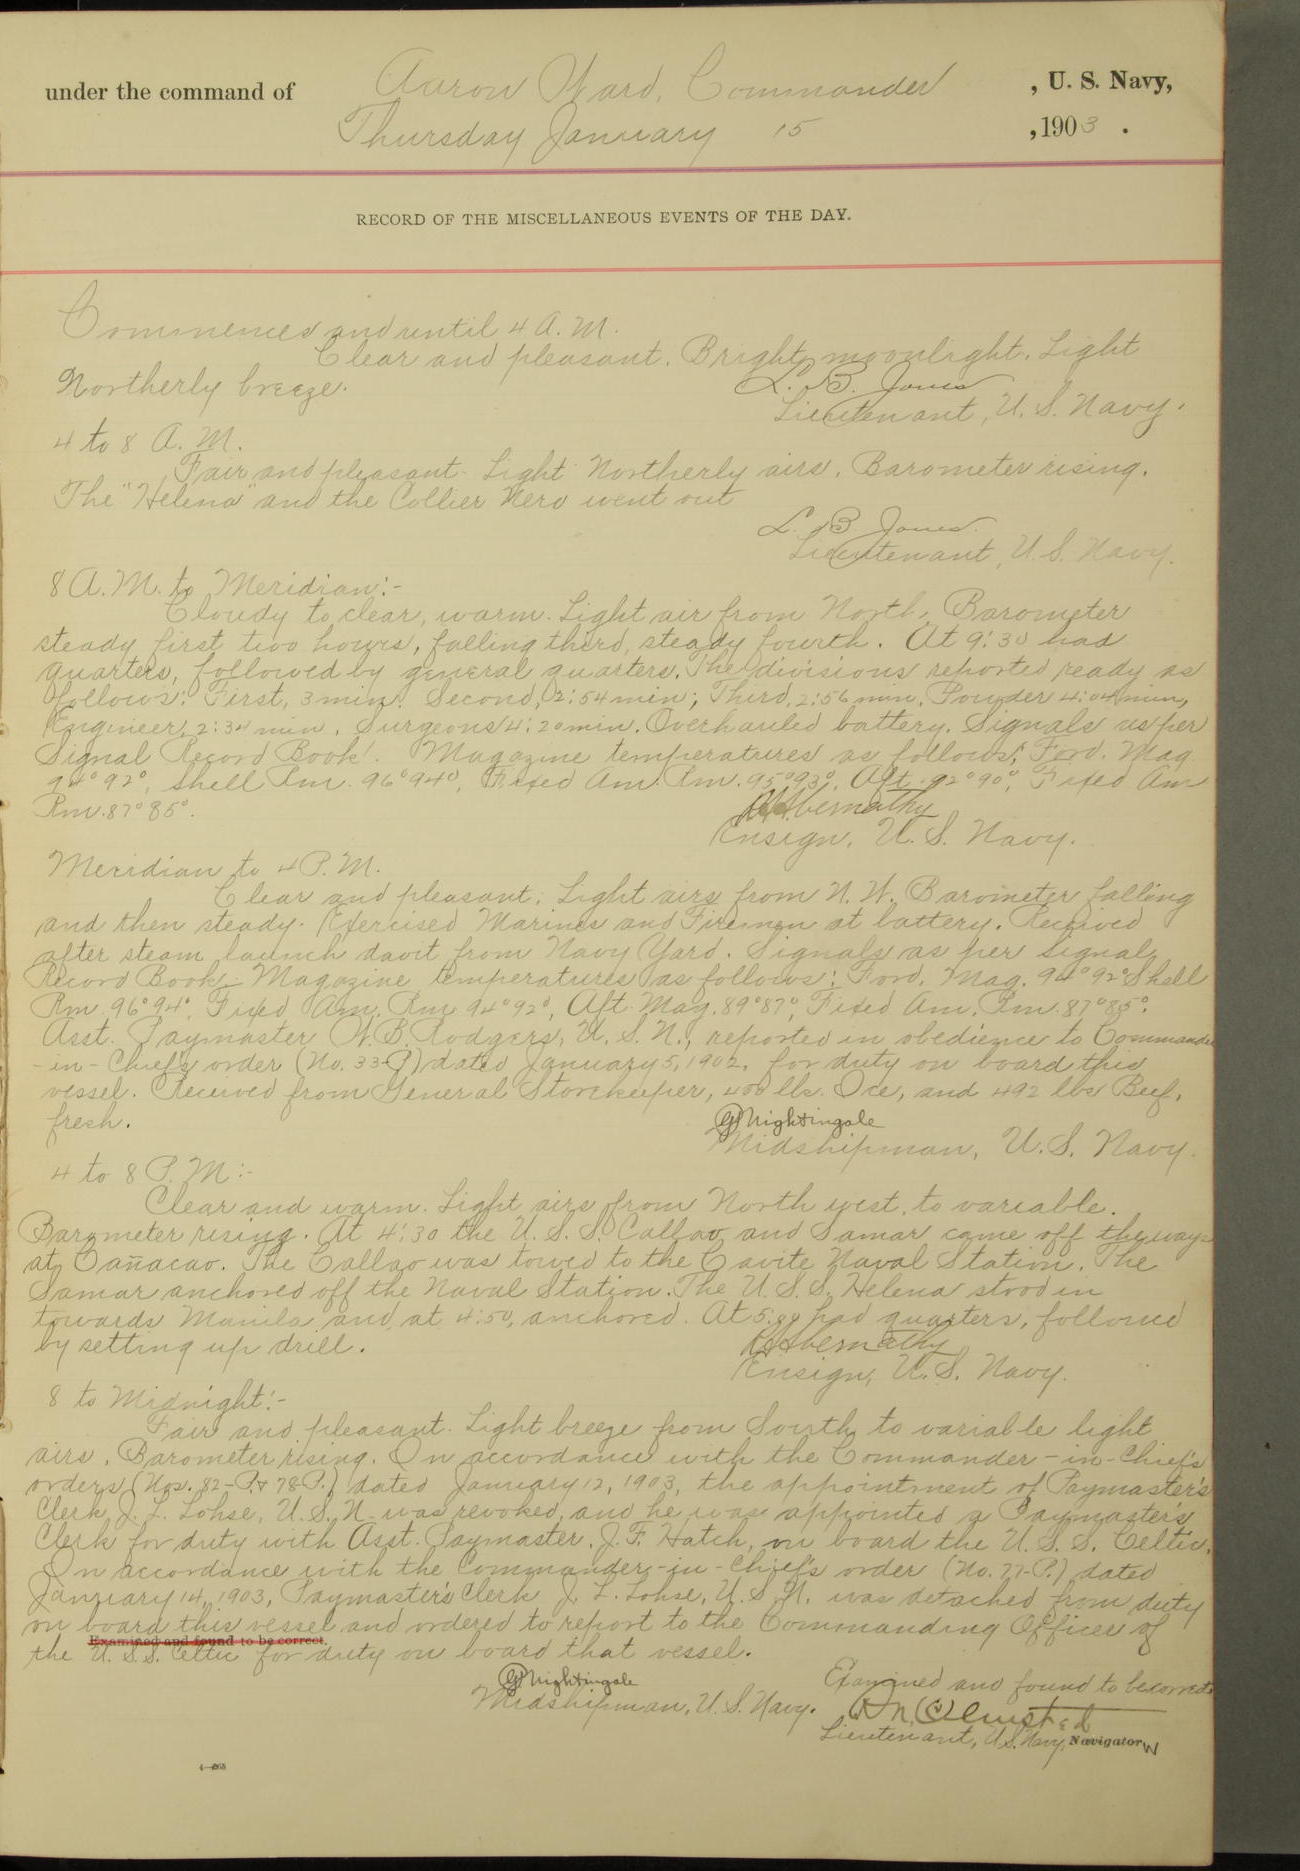 under the command of Aaron Ward, Commander , U. S. Navy,
Thursday January 15 ,1903 .
RECORD OF THE MISCELLANEOUS EVENTS OF THE DAY.
Commences and until 4 A. M.
Clear and pleasant. Bright moonlight. Light
Northerly breeze.
L. B. Jones
Lieutenant, U. S. Navy.
4 to 8 A. M.
Fair and pleasant. Light Northerly airs. Barometer rising.
The "Helena" and the Collier Nero went out
L. B. Jones.
Lieutenant, U. S. Navy.
8 A. M. to Meridian:-
Cloudy to clear, warm. Light air from North, Barometer
steady first two hours, falling third, steady fourth. At 9:30 had
quarters, followed by general quarters. The divisions reported ready as
follows: First, 3 min; Second, 2:54 min; Third, 2:56 min, Powder 4:04 min,
Engineer, 2:34 min. Surgeons 4:20 min. Overhauled battery. Signals as per
Signal Record Book. Magazine temperatures as follows: Ford. Mag
94° 92°, Shell Rm. 96° 94°, Fixed Am. Rm. 95° 93°, Aft. 92° 90°, Fixed Am
Rm. 87° 85°.
Abernathy
Ensign, U. S. Navy.
Meridian to 4 P. M.
Clear and pleasant. Light airs from N. W. Barometer falling
and then steady. Exercised Marines and Firemen at battery. Received
after steam launch davit from Navy Yard. Signals as per Signal
Record Book. Magazine temperatures as follows: Ford. Mag. 94° 92° Shell
Rm 96° 94°, Fixed Am. Rm 94° 92°, Aft. Mag. 89° 87°, Fixed Am. Rm. 87° 85°.
Asst. Paymaster W. B. Rodgers, U. S. N., reported in obedience to Commander
-in-Chief's order (No. 33-P) dated January 5, 1902, for duty on board this
vessel. Received from General Storekeeper, 400 lbs. Ice, and 492 lbs Beef,
fresh.
Nightingale
Midshipman, U. S. Navy.
4 to 8 P. M:-
Clear and warm. Light airs from North west, to variable.
Barometer rising. At 4:30 the U. S. S. Callao and Samar came off the ways
at Cañacao. The Callao was towed to the Cavite Naval Station. The
Samar anchored off the Naval Station. The U. S. S. Helena stood in
towards Manila and at 4:50, anchored. At had quarters, followed
by setting up drill.
Abernathy
Ensign, U. S. Navy.
8 to Midnight:-
Fair and pleasant. Light breeze from South to variable light
airs. Barometer rising. In accordance with the Commander-in-Chief's
orders (Nos. 82-P. & 78-P.) dated January 12, 1903, the appointment of Paymaster's
Clerk J. L. Lohse, U. S. N. was revoked, and he was appointed a Paymaster's
Clerk for duty with Asst. Paymaster, J. F. Hatch, on board the U. S. S. Celtic.
In accordance with the Commander-in-Chief's order (No. 77-P.) dated
January 14, 1903, Paymaster's Clerk J. L. Lohse, U. S. N. was detached from duty
on board this vessel and ordered to report to the Commanding Officer of
Examined and found to be correct.
the U. S. S. Celtic for duty on board that vessel.
Nightingale
Midshipman, U. S. Navy.
Examined and found to be correct
Olmsted
Lieutenant, U. S. Navy, Navigator